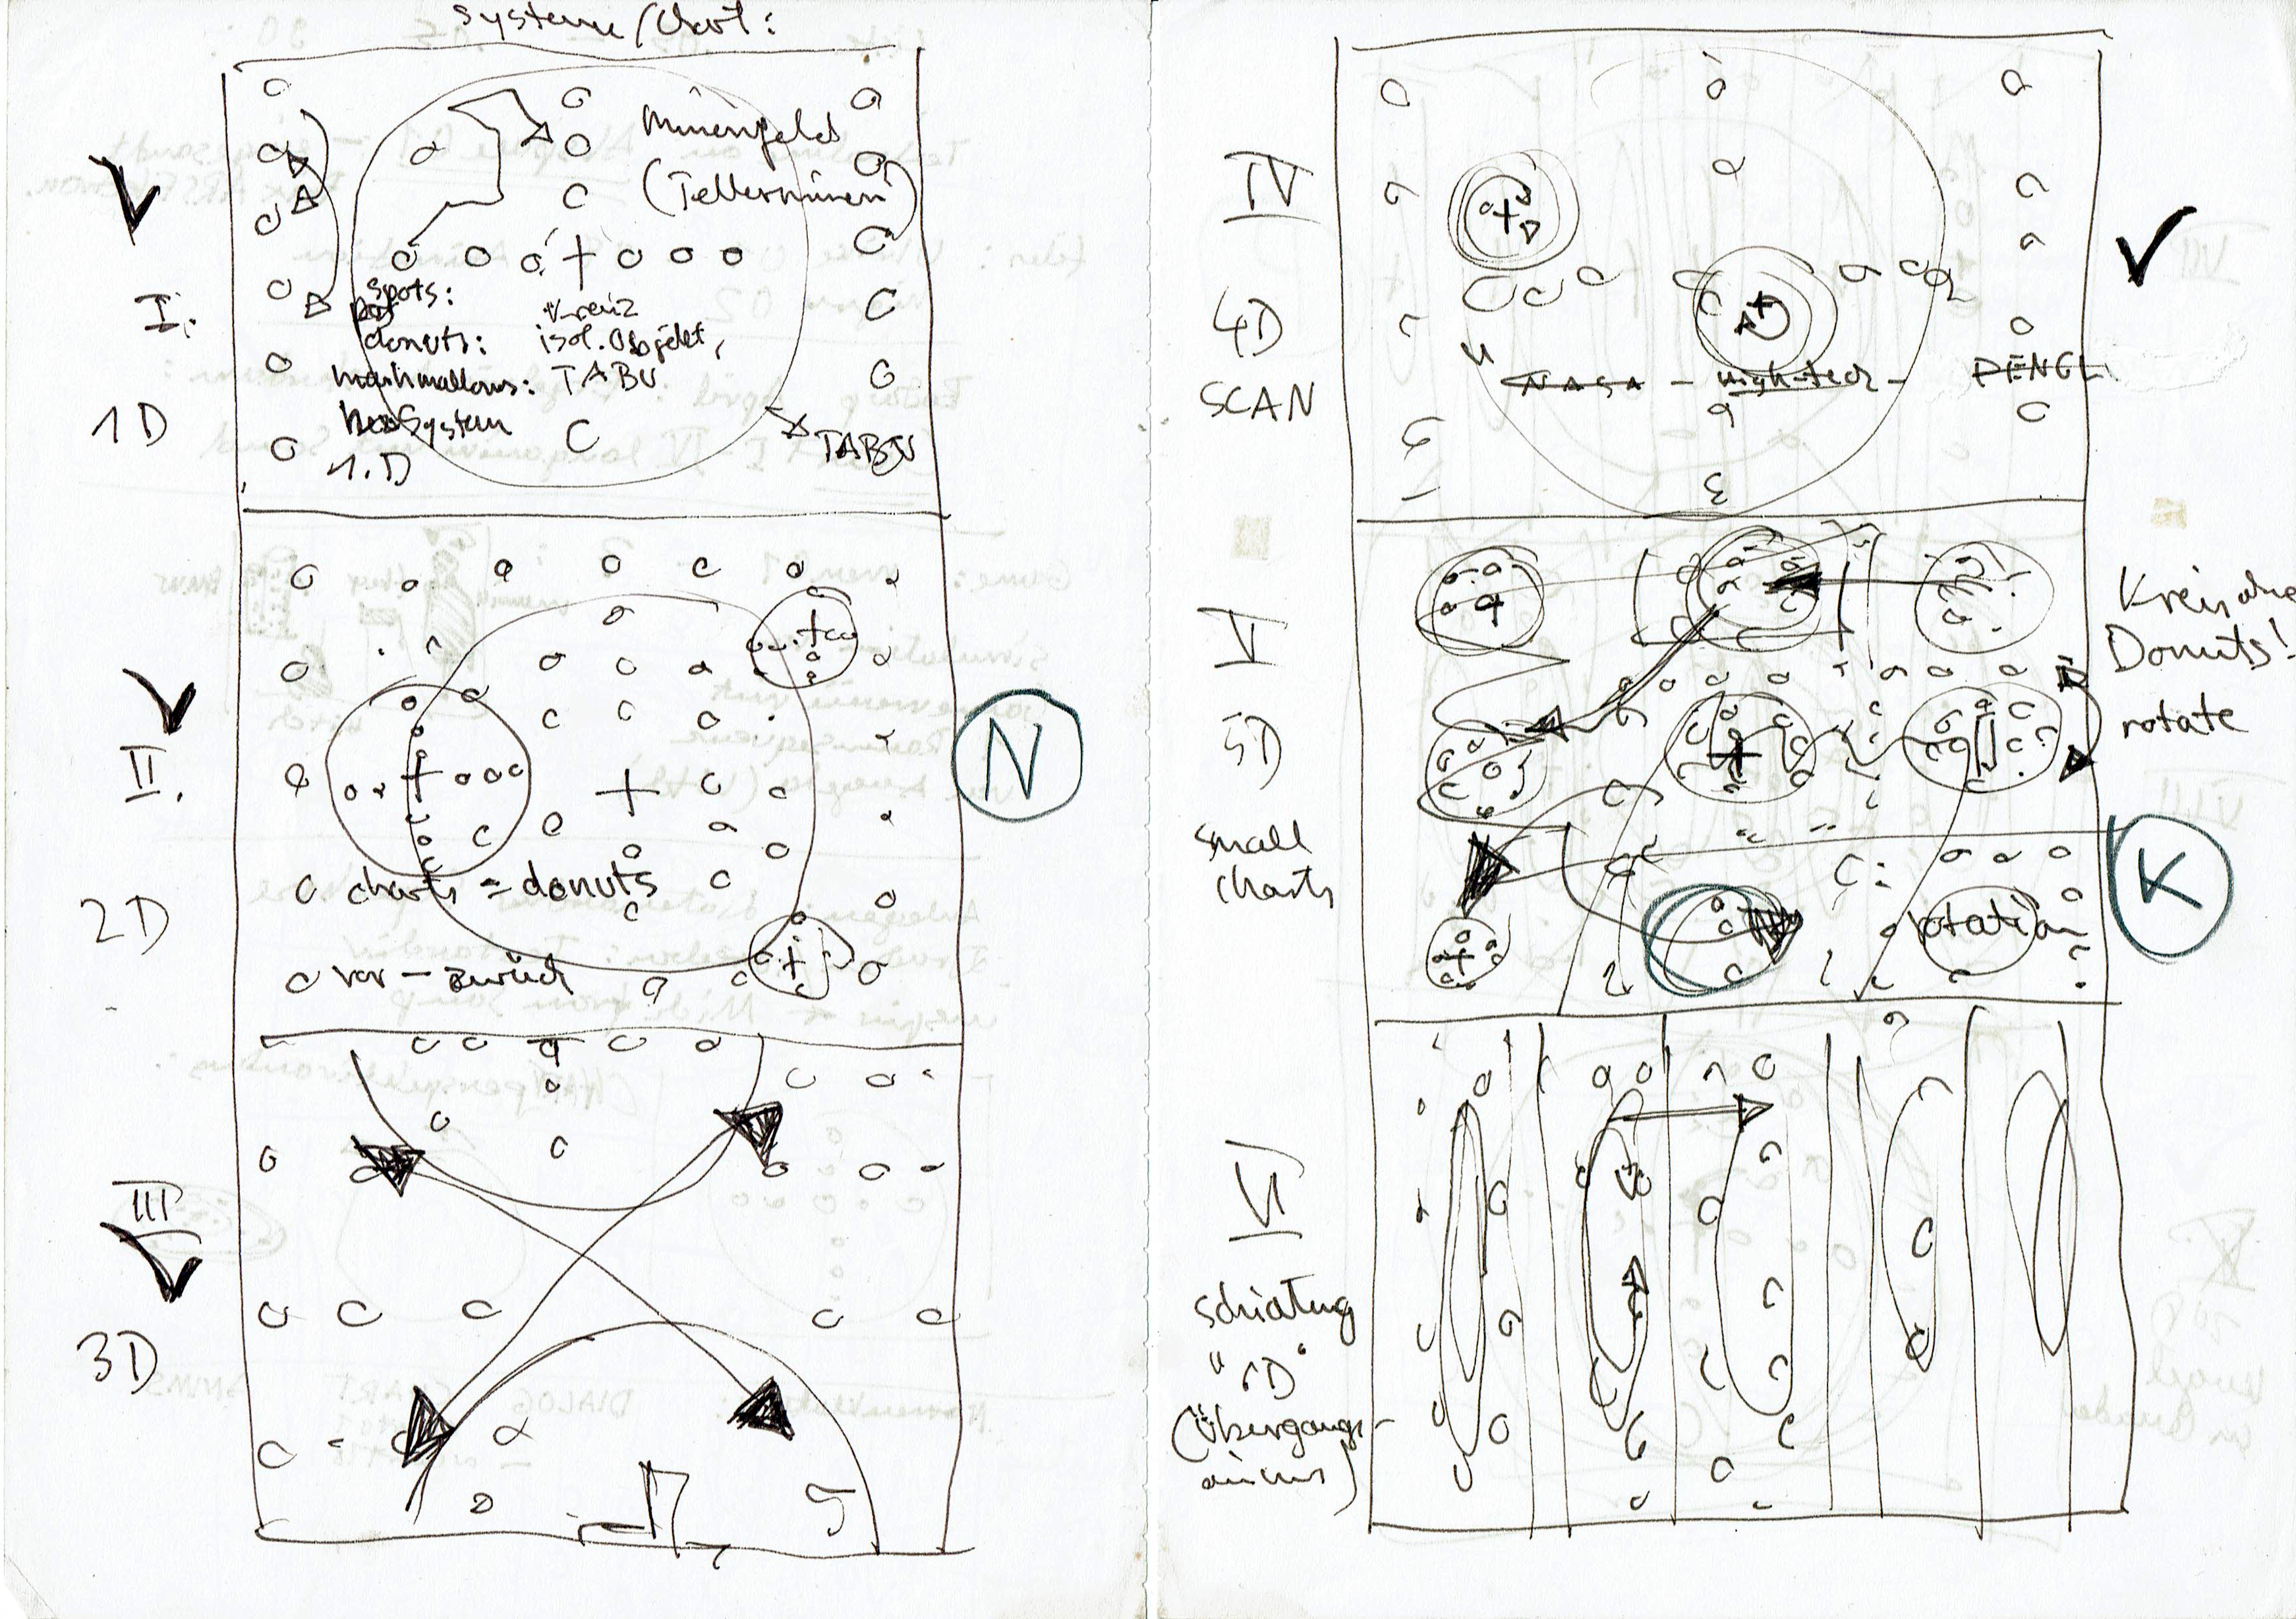 Systeme/Chart:
Minenfeld
(Tellerminen)
I.
1D
spots:
Kreuz
donuts: isol. Objekt,
marshmallows: TABU
System
1.D
TABU
II.
2D
charts = donuts
vor – zurück
N
III
3D
IV
4D
SCAN
NASA – High-tech –
V
5D
small
charts
Kreis ohne
Donuts!
rotate
K
rotation
VI
"6D"
(Übergangs-